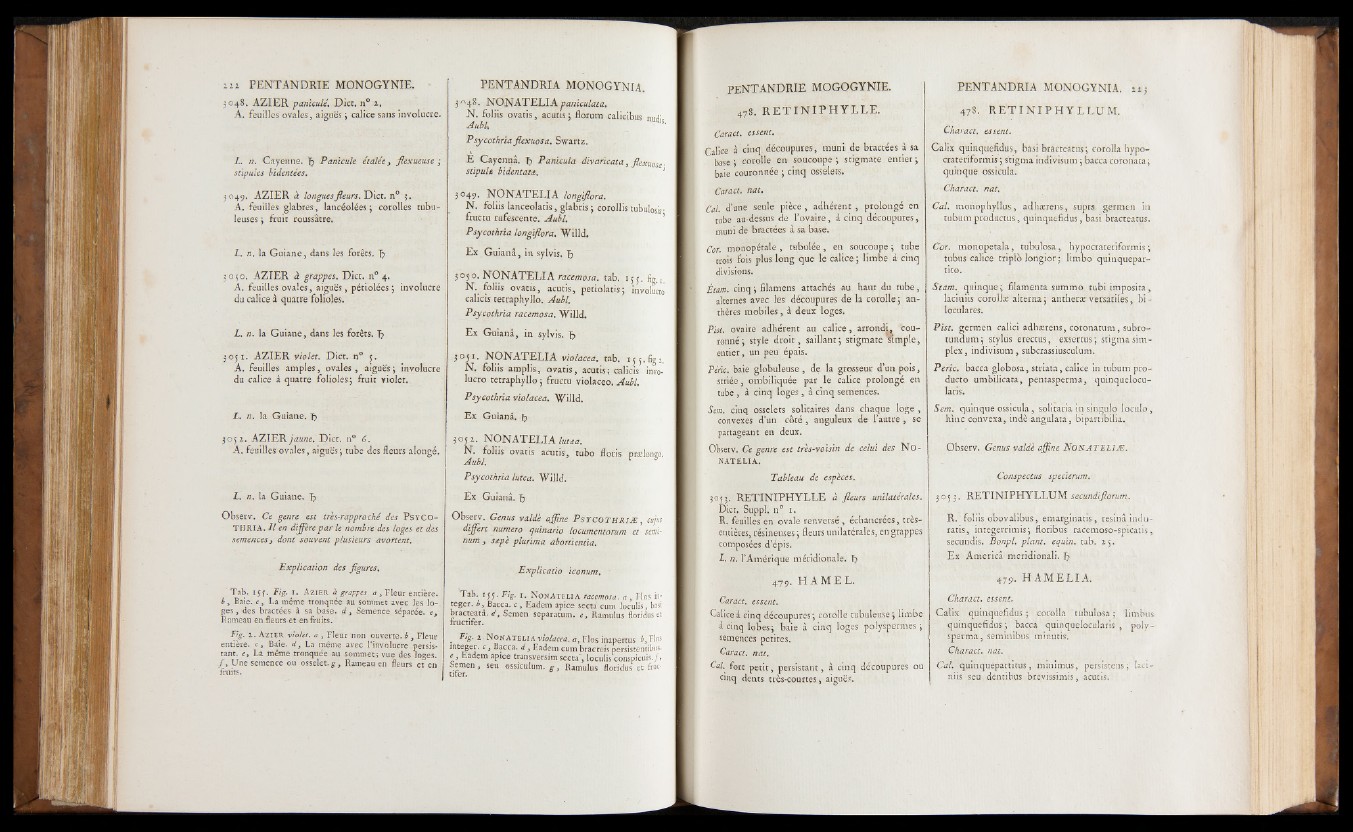 222 PENTANDRIE MONOGYNIE.
3048. AZIER paniculé. Dict. n° 2.
A. feuilles ovales, aiguës; calice sans involucre.
L. n. Cayenne. ♄ Panicule étalée, flexueuse;
stipules bidentées.
3049. AZIER à longues fleurs. Dict. n° 3.
A. feuilles glabres, lancéolées; corolles tubu-
leuses; fruit roussâtre.
L. n. la Guiane, dans les forêts. ♄
3050. AZIER à grappes. Dict. n° 4.
A. feuilles ovales, aiguës, pétiolées; involucre
du calice à quatre folioles.
L. n. la Guiane, dans les forêts. ♄
3051. AZIER violet. Dict. n° 5.
A. feuilles amples, ovales, aiguës; involucre
du calice à quatre folioles; fruit violet.
L. n. la Guiane. ♄
3052. AZIER jaune. Dict. n° 6.
A. feuilles ovales, aiguës; tube des fleurs alongé.
L. n. la Guiane. ♄
Observ. Ce genre est très-rapproché des PSYCO-
THRIA. Il en diffère par le nombre des loges et des
semences, dont souvent plusieurs avortent.
Explication des figures.
Tab. 155. Fig. 1. AZIER à grappes a, Fleur entière.
b, Baie. c, La même tronquée au sommet avec les lo-
ges, des bractées à sa base. d, Semence séparée. e,
Rameau en fleurs et en fruits.
Fig. 2. AZIER violet. a, Fleur non ouverte. b, Fleur
entière. c, Baie. d, La même avec l'involucre persis-
tant. e, La même tronquée au sommet; vue des loges.
f, Une semence ou osselet. g, Rameau en fleurs et en
fruits.
PENTANDRIA MONOGYNIA.
3048. NONATELIA paniculata.
N. foliis ovatis, acutis; florum calicibus nudis.
Aubl.
Psycothria flexuosa. Swartz.
È Cayennâ. ♄ Panicula divaricata, flexuosa;
stipulæ bidentatæ.
3049. NONATELIA longiflora.
N. foliis lanceolatis, glabris; corollis tubulosis;
fructu rufescente. Aubl.
Psycothria longiflora. Willd.
Ex Guianâ, in sylvis. ♄
3050. NONATELIA racemosa. tab. 155. fig. 1.
N. foliis ovatis, acutis, petiolatis; involucro
calicis tetraphyllo. Aubl.
Psycothria racemosa. Willd.
Ex Guianâ, in sylvis. ♄
3051. NONATELIA violacea. tab. 155. fig 2.
N. foliis amplis, ovatis, acutis; calicis invo-
lucro tetraphyllo; fructu violaceo. Aubl.
Psycothria violacea. Willd.
Ex Guianâ. ♄
3052. NONATELIA lutea.
N. foliis ovatis acutis, tubo floris prælongo.
Aubl.
Psycothria lutea. Willd.
Ex Guianâ. ♄
Observ. Genus valdè affine PSYCOTHRIÆ, cujus
differt numero quinario loculamentorum et semi-
num, sæpè plurima abortientia.
Explicatio iconum.
Tab. 155. Fig. 1. NONATELIA racemosa. a, Flos in-
teger. b, Bacca. c, Eadem apice secta cum loculis, basi
bracteatâ. d, Semen separatum. e, Ramulus floridus et
fructifer.
Fig. 2 NONATELIA violacea. a, Flos inapertus b, Flos
integer. c, Bacca. d, Eadem cum bracteis persistentibus.
e, Eadem apice transversim secta, loculis conspicuis. f,
Semen, seu ossiculum. g, Ramulus floridus et fruc-
tifer.
PENTANDRIE MOGOGYNIE.
478. RETINIPHYLLE.
Caract. essent.
Calice à cinq découpures, muni de bractées à sa
base; corolle en soucoupe; stigmate entier;
baie couronnée; cinq osselets.
Caract. nat.
Cal. d'une seule pièce, adhérent, prolongé en
tube au-dessus de l'ovaire, à cinq découpures,
muni de bractées à sa base.
Cor. monopétale, tubulée, en soucoupe; tube
trois fois plus long que le calice; limbe à cinq
divisions.
Étam. cinq; filamens attachés au haut du tube,
alternes avec les découpures de la corolle; an-
thères mobiles, à deux loges.
Pist. ovaire adhérent au calice, arrondi, cou-
ronné; style droit, saillant; stigmate simple,
entier, un peu épais.
Péric. baie globuleuse, de la grosseur d'un pois,
striée, ombiliquée par le calice prolongé en
tube, à cinq loges, à cinq semences.
Sem. cinq osselets solitaires dans chaque loge,
convexes d'un côté, anguleux de l'autre, se
partageant en deux.
Observ. Ce genre est très-voisin de celui des NO-
NATELIA.
Tableau de espèces.
3053. RETINIPHYLLE à fleurs unilatérales.
Dict. Suppl. n° 1.
R. feuilles en ovale renversé, échancrées, très-
entières, résineuses; fleurs unilatérales, en grappes
composées d'épis.
L. n. l'Amérique méridionale. ♄
479. HAMEL.
Caract. essent.
Calice à cinq découpures; corolle tubuleuse; limbe
à cinq lobes; baie à cinq loges polyspermes;
semences petites.
Caract. nat.
Cal. fort petit, persistant, à cinq découpures ou
cinq dents très-courtes, aiguës.
PENTANDRIA MONOGYNIA. 223
478. RETINIPHYLLUM.
Charact. essent.
Calix quinquefidus, basi bracteatus; corolla hypo-
crateriformis; stigma indivisum; bacca coronata;
quinque ossicula.
Charact. nat.
Cal. monophyllus, adhærens, supra germen in
tubum productus, quinquefidus, basi bracteatus.
Cor. monopetala, tubulosa, hypocrateriformis;
tubus calice triplò longior; limbo quinquepar-
tito.
Stam. quinque; filamenta summo tubi imposita,
laciniis corollæ alterna; antheræ versatiles, bi-
loculares.
Pist. germen calici adhærens, coronatum, subro-
tundum; stylus erectus, exsertus; stigma sim-
plex, indivisum, subcrassiusculum.
Peric. bacca globosa, striata, calice in tubum pro-
ducto umbilicata, pentasperma, quinquelocu-
laris.
Sem. quinque ossicula, solitaria in singulo loculo,
hinc convexa, indè angulata, bipartibilia.
Observ. Genus valdè affine NONATELIÆ.
Conspectus specierum.
3053. RETINIPHYLLUM secundiflorum.
R. foliis obovalibus, emarginatis, resinâ indu-
ratis, integerrimis; floribus racemoso-spicatis,
secundis. Bonpl. plant. equin. tab. 25.
Ex Americâ meridionali. ♄
479. HAMELIA.
Charact. essent.
Calix quinquefidus; corolla tubulosa; limbus
quinquefidus; bacca quinquelocularis, poly-
sperma, seminibus minutis.
Charact. nat.
Cal. quinquepartitus, minimus, persistens; laci-
niis seu dentibus brevissimis, acutis.